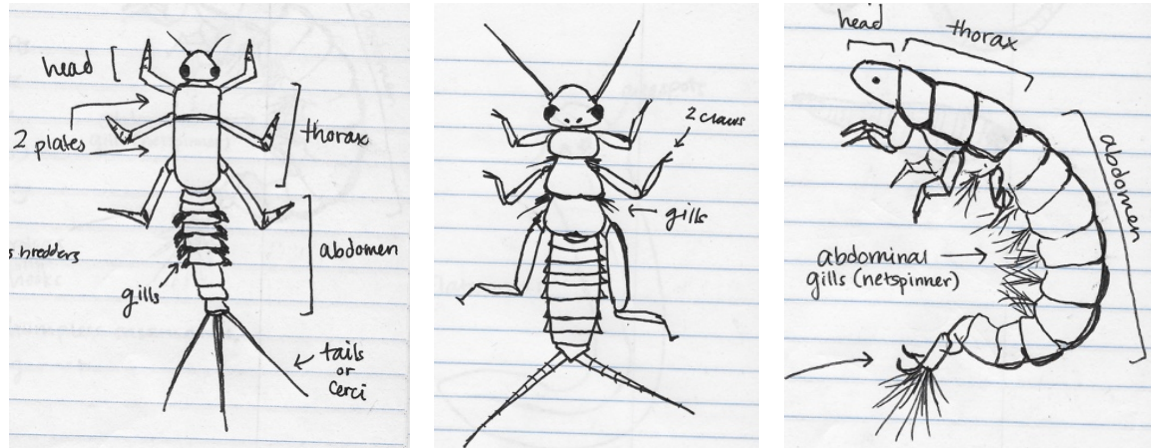 head
2 plates
thorax
s hredders
abdomen
gills
tails
or
cerci
2 claws
gills
head
thorax
abdomen
abdominal
gills (netspinner)